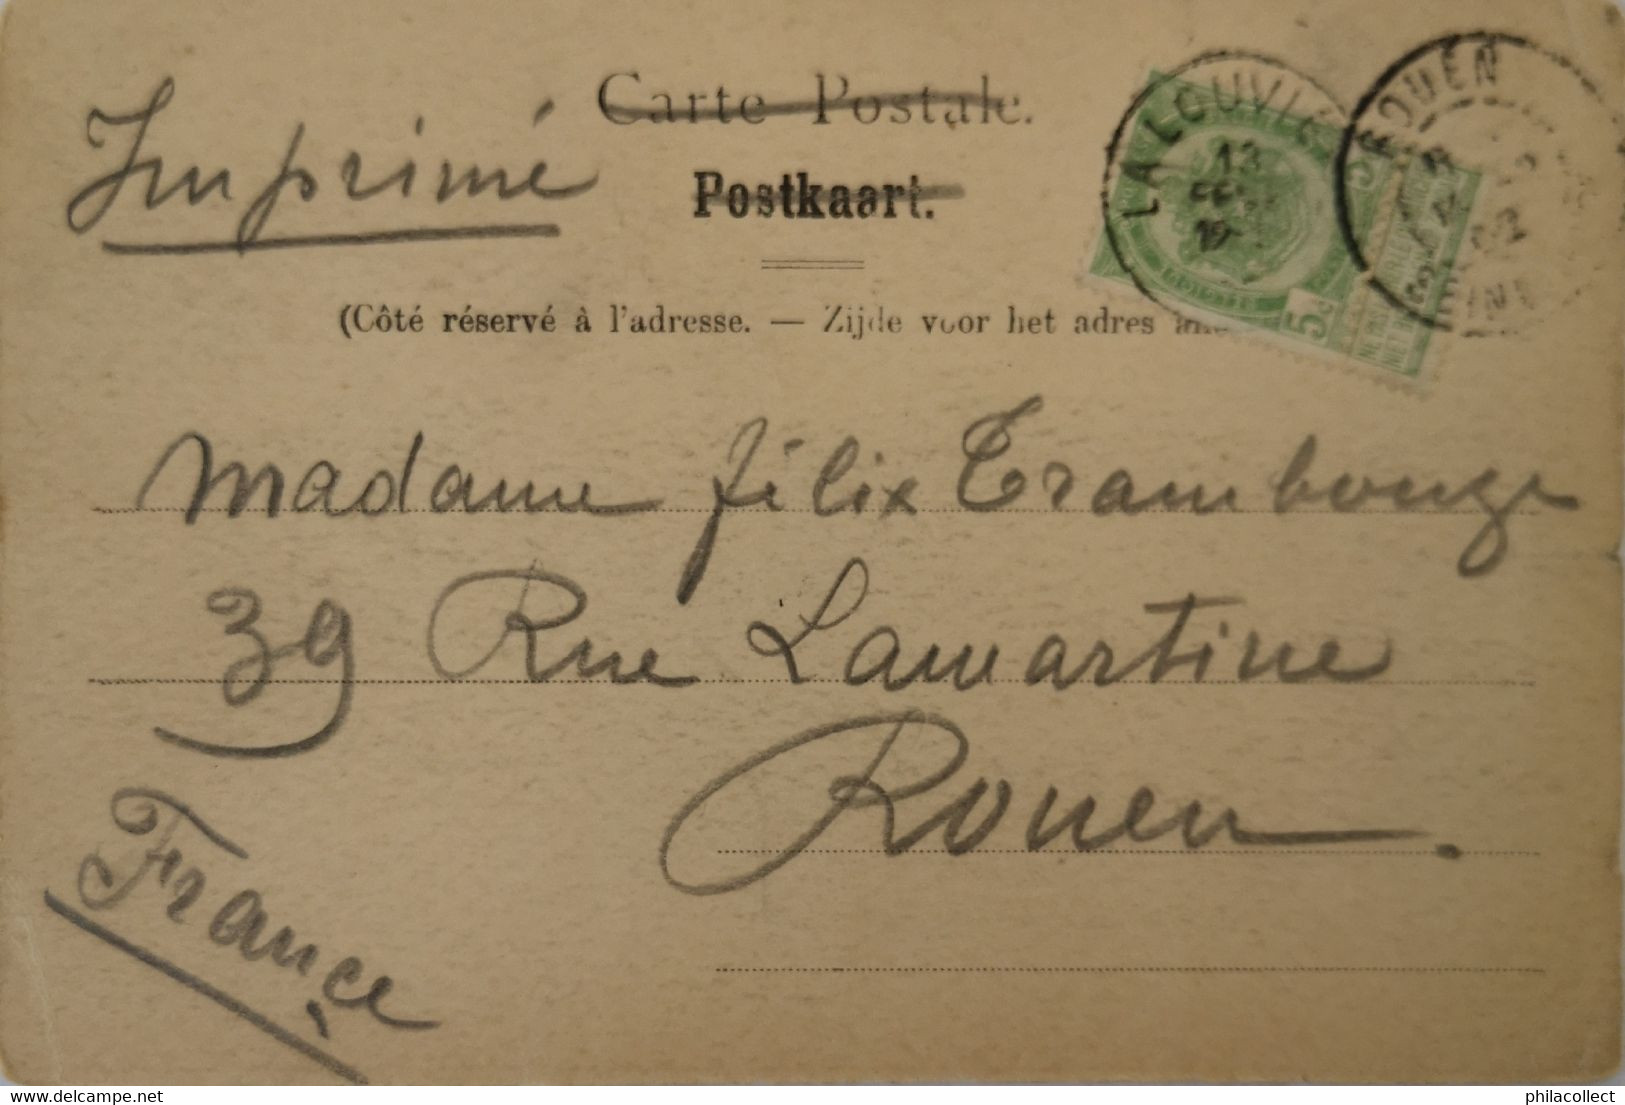 Imprimé
Carte Postale.
Postkaart.
(Côté réservé à l'adresse. — Zijde voor het adres
LA LOUVIÈ
13
ROUEN
5c
Madame Félix Trambouze
39 Rue Lamartine
Rouen.
France
delcampe.net
philacollect